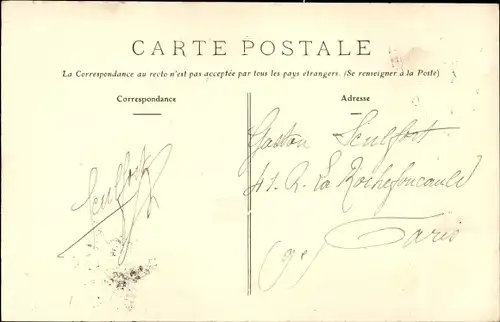 CARTE POSTALE
La Correspondance au recto n'est pas acceptée par tous les pays étrangers. (Se renseigner à la Poste)
Correspondance
Adresse
Gaston Senffort
41. R. La Rochefoucauld
Paris
(9e)
Senffort